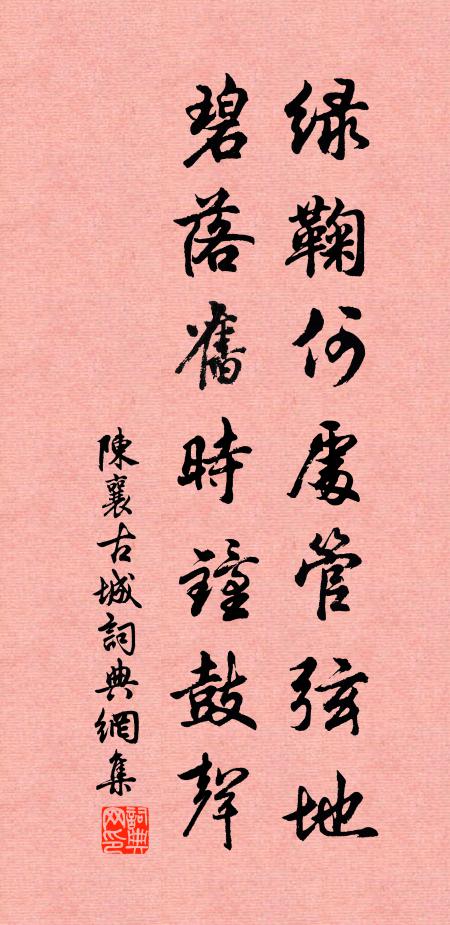 绿鞠何處管弦地
碧落舊時鐘鼓聲
陳襄古城詞典網集
詞典网印